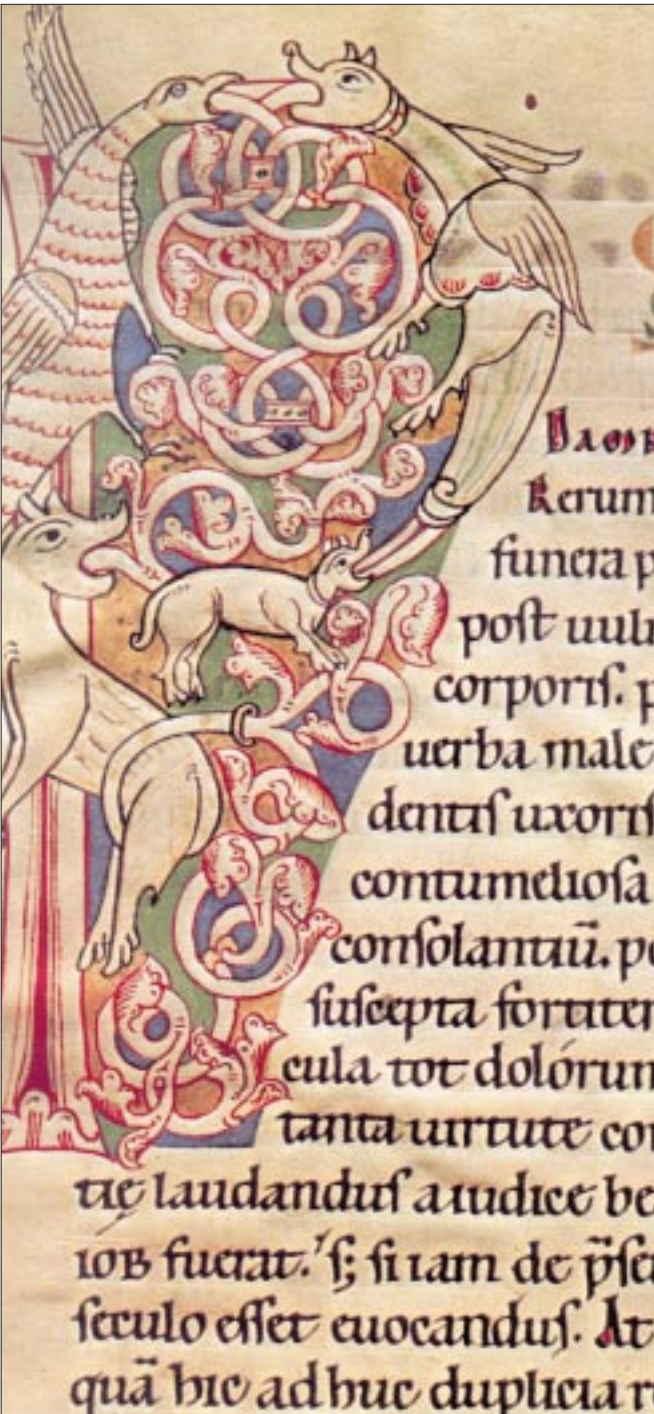 Dam
Rerum
funera p
poſt uul
corporiſ. p
uerba male
dentiſ uxoriſ
contumelioſa
conſolantiū. po
ſuſcepta fortiter
cula tot dolórum
tanta uirtute con
tię laudanduſ a iudice be
iob fuerat. ſ; ſi iam de p̄ſe
ſeculo eſſet euocanduſ. At
quā hic adhuc duplicia r